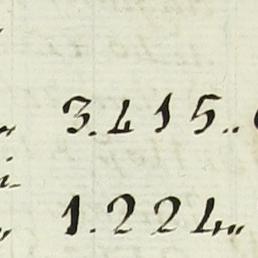 3.415..
1.224..